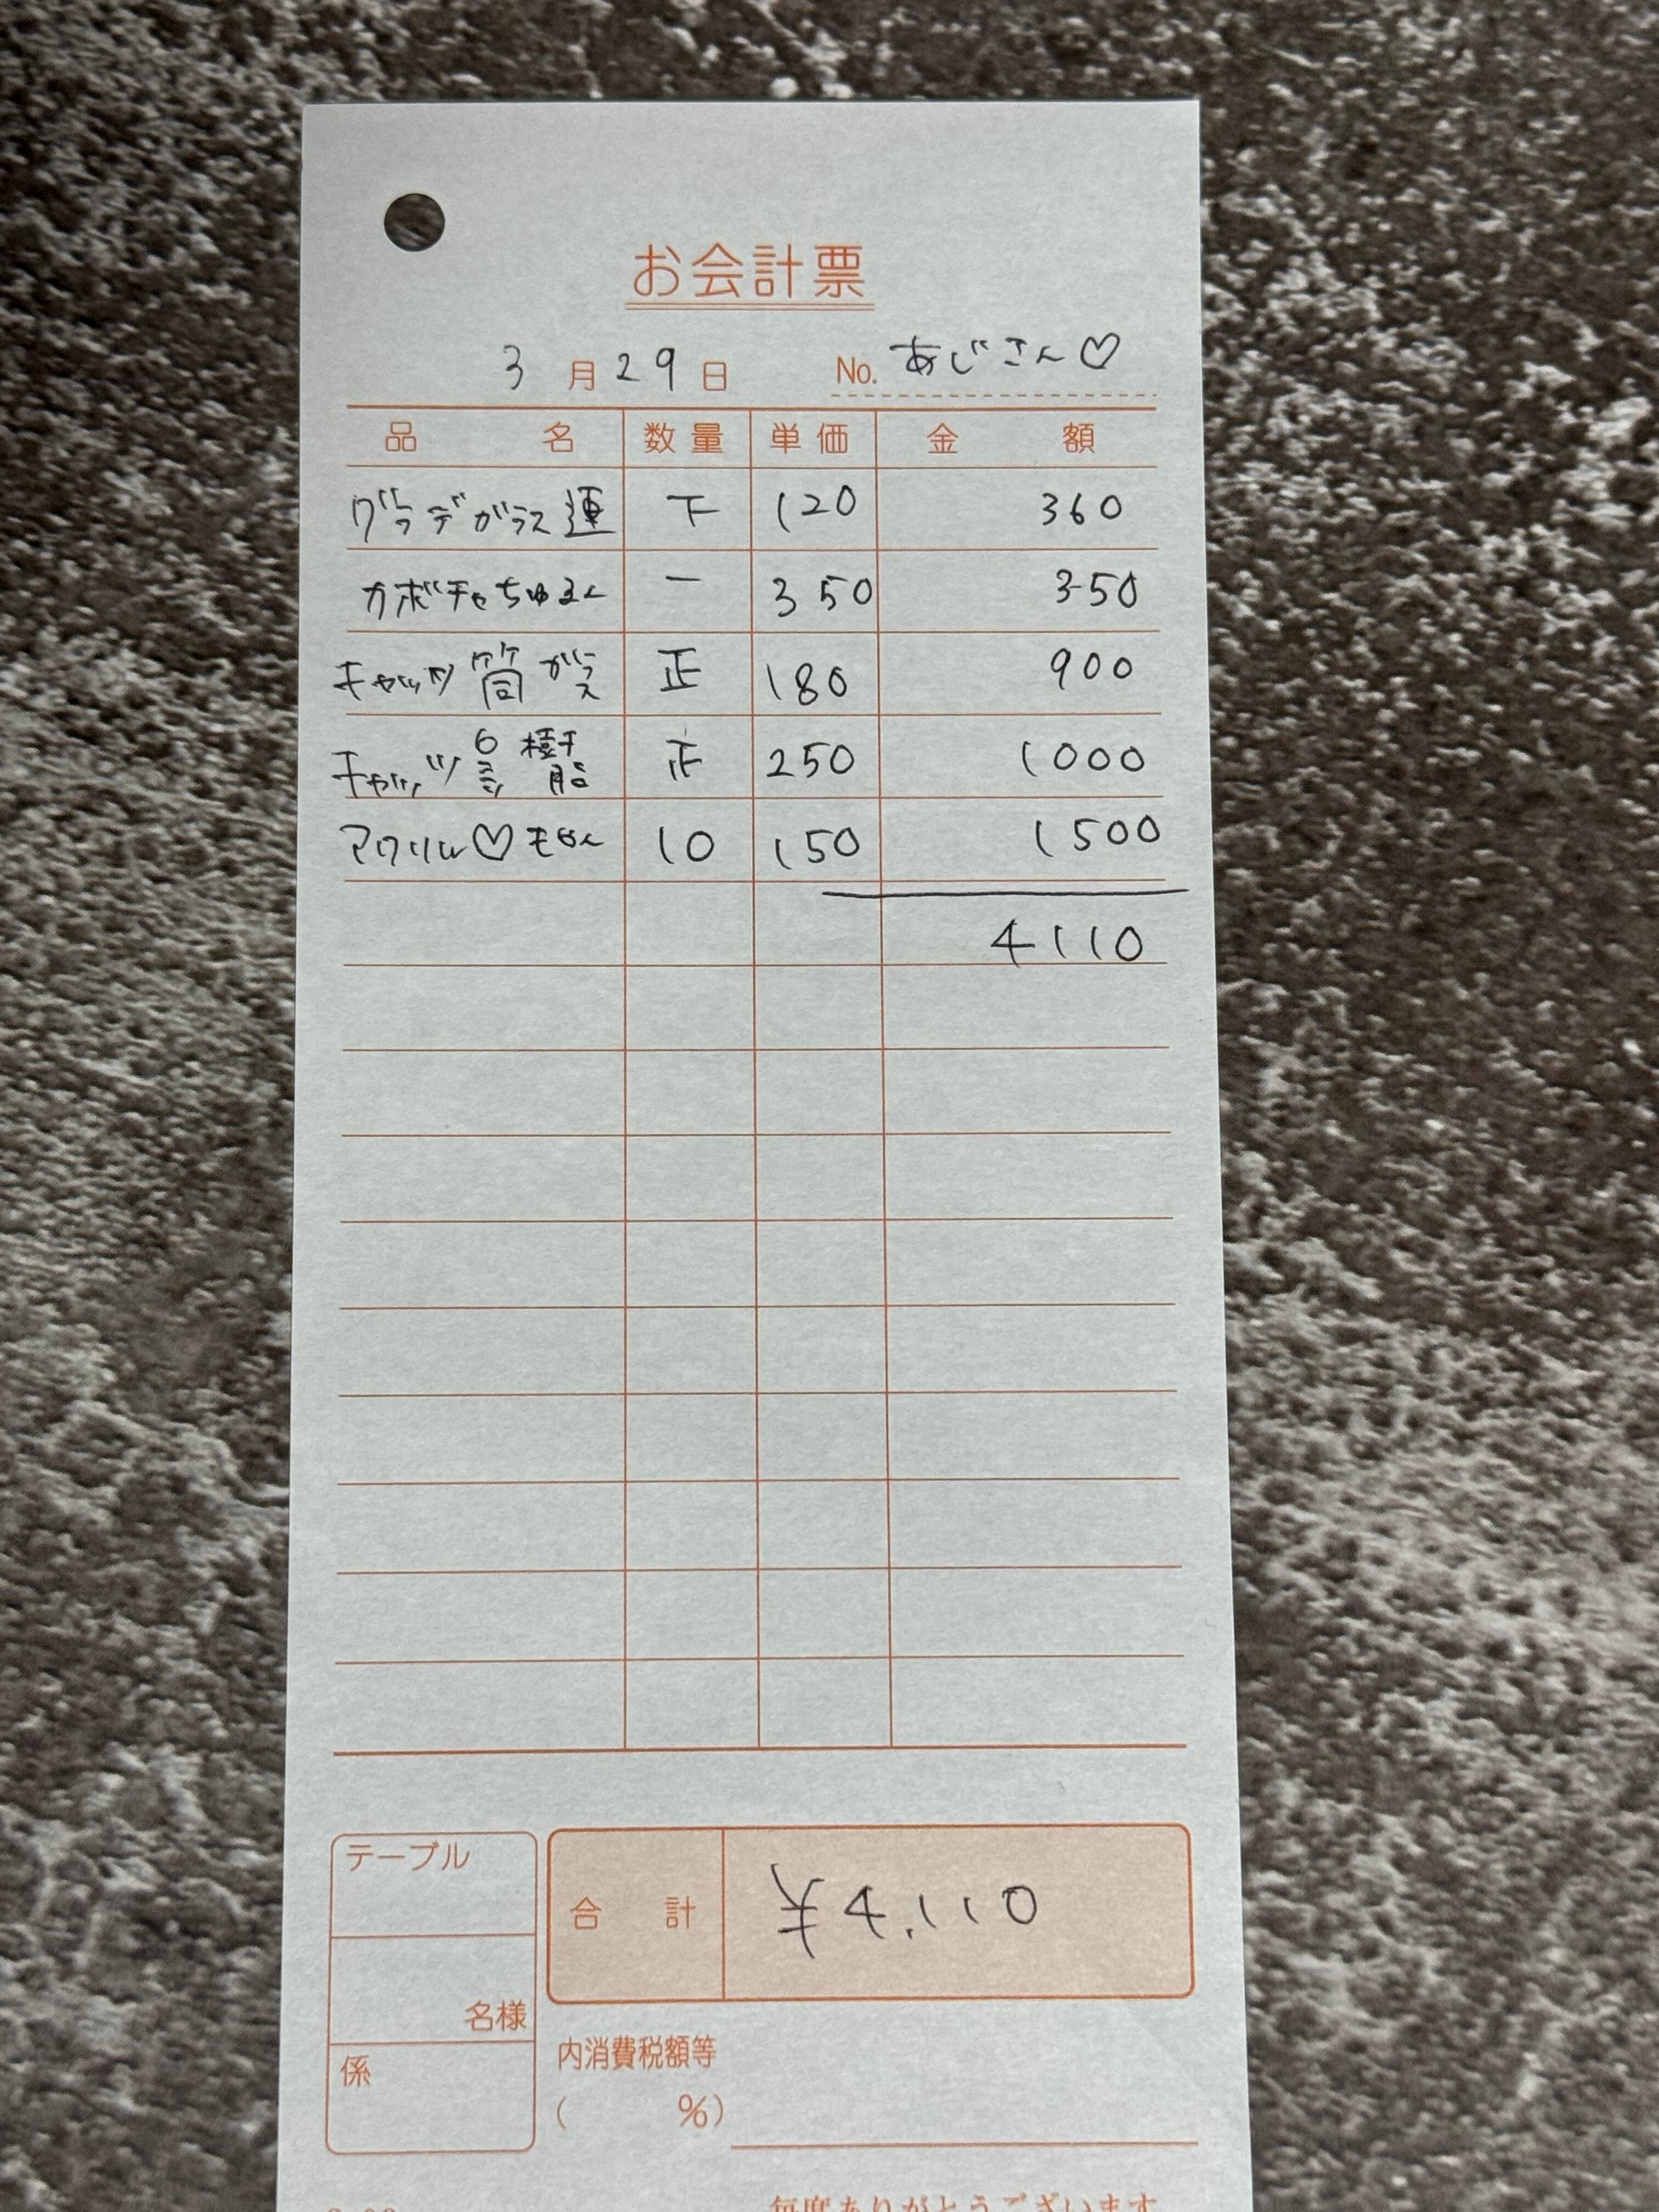 お会計票
3月29日 No. あじさん♡
品名 数量 単価 金額
グラデガラス連 下 120 360
カボチャちゅるん 一 350 350
キャッツ筒ガラス 正 180 900
キャッツ6ミリ樹脂 正 250 1000
アクリル♡もちん 10 150 1500
4110
テーブル
合計 ¥4,110
名様
係
内消費税額等
( %)
毎度ありがとうございます